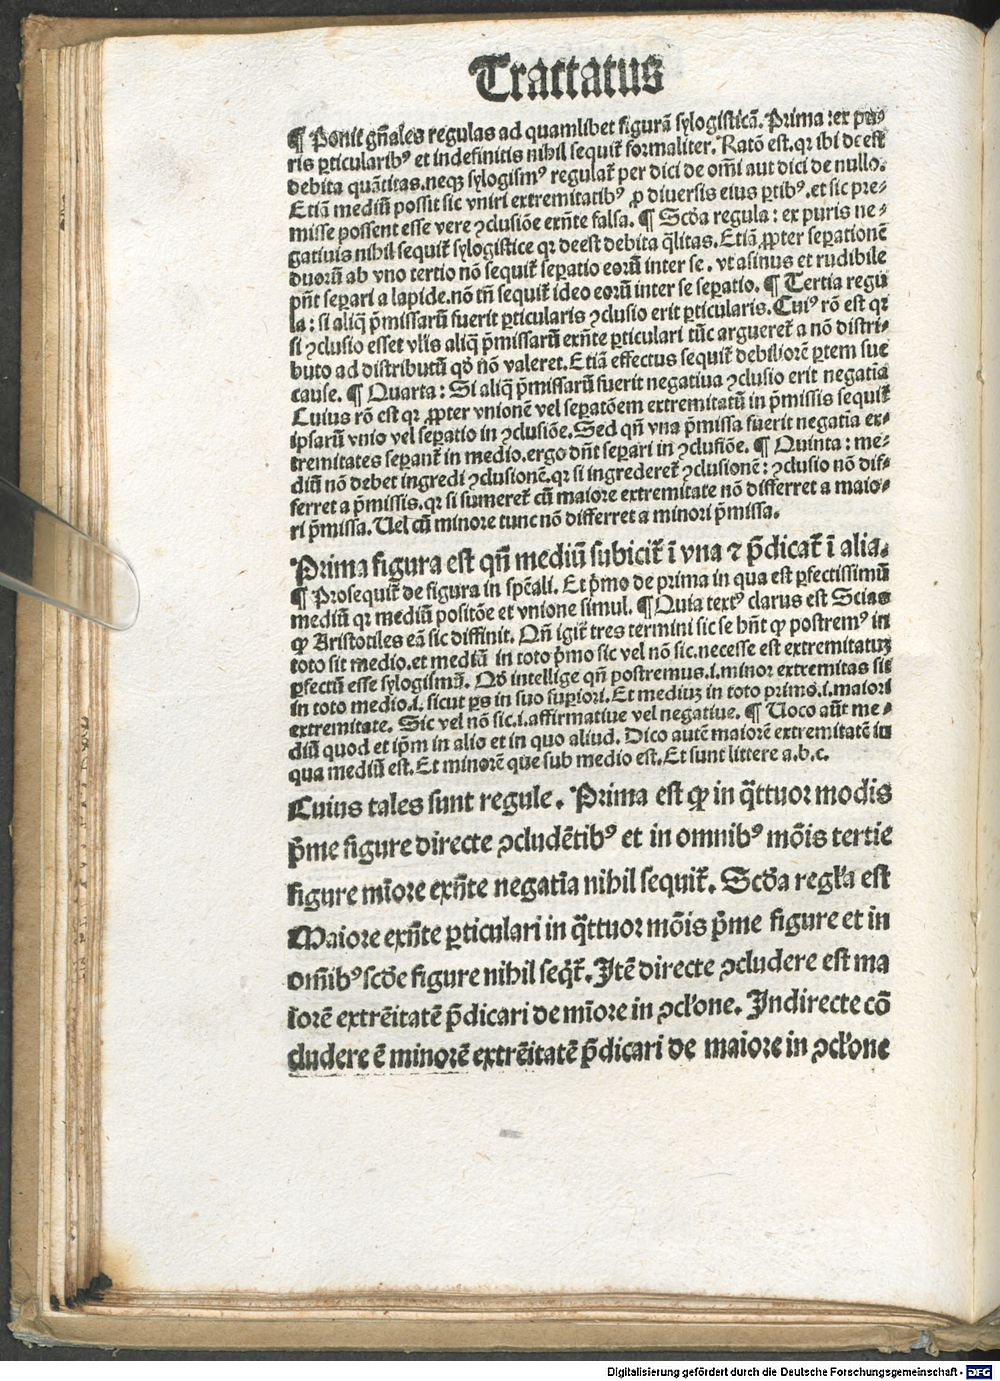 Tractatus
¶ Ponit gñales regulas ad quamlibet figurã sylogisticã. Prima: ex pu-
ris ꝑticularibꝰ et indefinitis nihil sequit᷑ formaliter. Ratõ est. qꝛ ibi deest
debita quãtitas. neqꝫ sylogismꝰ regulat᷑ per dici de om̃i aut dici de nullo.
Etiã mediũ possit sic vniri extremitatibꝰ ꝓ diuersis eius ꝑtibꝰ. et sic pre-
misse possent esse vere ꝯclusiõe exñte falsa. ¶ Scd̃a regula: ex puris ne-
gatiuis nihil sequit᷑ sylogistice qꝛ deest debita q̃litas. Etiã ꝓpter seꝑationẽ
duorũ ab vno tertio nõ sequit᷑ seꝑatio eorũ inter se. vt asinus et rudibile
pñt seꝑari a lapide. nõ tñ sequit᷑ ideo eorũ inter se seꝑatio. ¶ Tertia regu
la: si aliq̃ p̃missarũ fuerit ꝑticularis ꝯclusio erit ꝑticularis. Cuiꝰ rõ est qꝛ
si ꝯclusio esset vlis aliq̃ p̃missarũ exñte ꝑticulari tũc argueret᷑ a nõ distri-
buto ad distributũ qd̃ nõ valeret. Etiã effectus sequit᷑ debiliorẽ ꝑtem sue
cause. ¶ Quarta: Si aliq̃ p̃missarũ fuerit negatiua ꝯclusio erit negatĩa
Cuius rõ est qꝛ ꝓpter vnionẽ vel seꝑatõem extremitatũ in p̃missis sequit᷑
ipsarũ vnio vel seꝑatio in ꝯclusiõe. Sed qñ vna p̃missa fuerit negatĩa ex-
tremitates seꝑant᷑ in medio. ergo dñt seꝑari in ꝯclusiõe. ¶ Quinta: me-
diũ nõ debet ingredi ꝯclusionẽ. qꝛ si ingrederet᷑ ꝯclusionẽ: ꝯclusio nõ dif-
ferret a p̃missis. qꝛ si sumeret᷑ cũ maiore extremitate nõ differret a maio-
ri p̃missa. Uel cũ minore tunc nõ differret a minori p̃missa.
Prima figura est qñ mediũ subicit᷑ ĩ vna ⁊ p̃dicat᷑ ĩ alia.
¶ Prosequit᷑ de figura in sp̃eali. Et p̃mo de prima in qua est ꝑfectissimũ
mediũ qꝛ mediũ positõe et vnione simul. ¶ Quia textꝰ clarus est Scias
ꝙ Aristotiles eã sic diffinit. Qñ igit᷑ tres termini sic se hñt ꝙ postremꝰ in
toto sit medio. et mediũ in toto p̃mo sic vel nõ sic. necesse est extremitatuꝫ
ꝑfectũ esse sylogismũ. Qd̃ intellige qñ postremus .i. minor extremitas sit
in toto medio .i. sicut ꝑs in suo suꝑiori. Et mediuꝫ in toto primo .i. maiori
extremitate. Sic vel nõ sic .i. affirmatiue vel negatiue. ¶ Uoco aũt me-
diũ quod et ip̃m in alio et in quo aliud. Dico autẽ maiorẽ extremitatẽ in
qua mediũ est. Et minorẽ que sub medio est. Et sunt littere a.b.c.
Cuius tales sunt regule. Prima est ꝙ in q̃ttuor modis
p̃me figure directe ꝯcludẽtibꝰ et in omnibꝰ mõis tertie
figure mĩore exñte negatĩa nihil sequit᷑. Scd̃a regl̃a est
Maiore exñte ꝑticulari in q̃ttuor mõis p̃me figure et in
om̃ibꝰ scd̃e figure nihil seq̃t᷑. Jtẽ directe ꝯcludere est ma
iorẽ extrẽitatẽ p̃dicari de mĩore in ꝯcl̃one. Jndirecte cõ
cludere ẽ minorẽ extrẽitatẽ p̃dicari de maiore in ꝯcl̃one
Digitalisierung gefördert durch die Deutsche Forschungsgemeinschaft - DFG